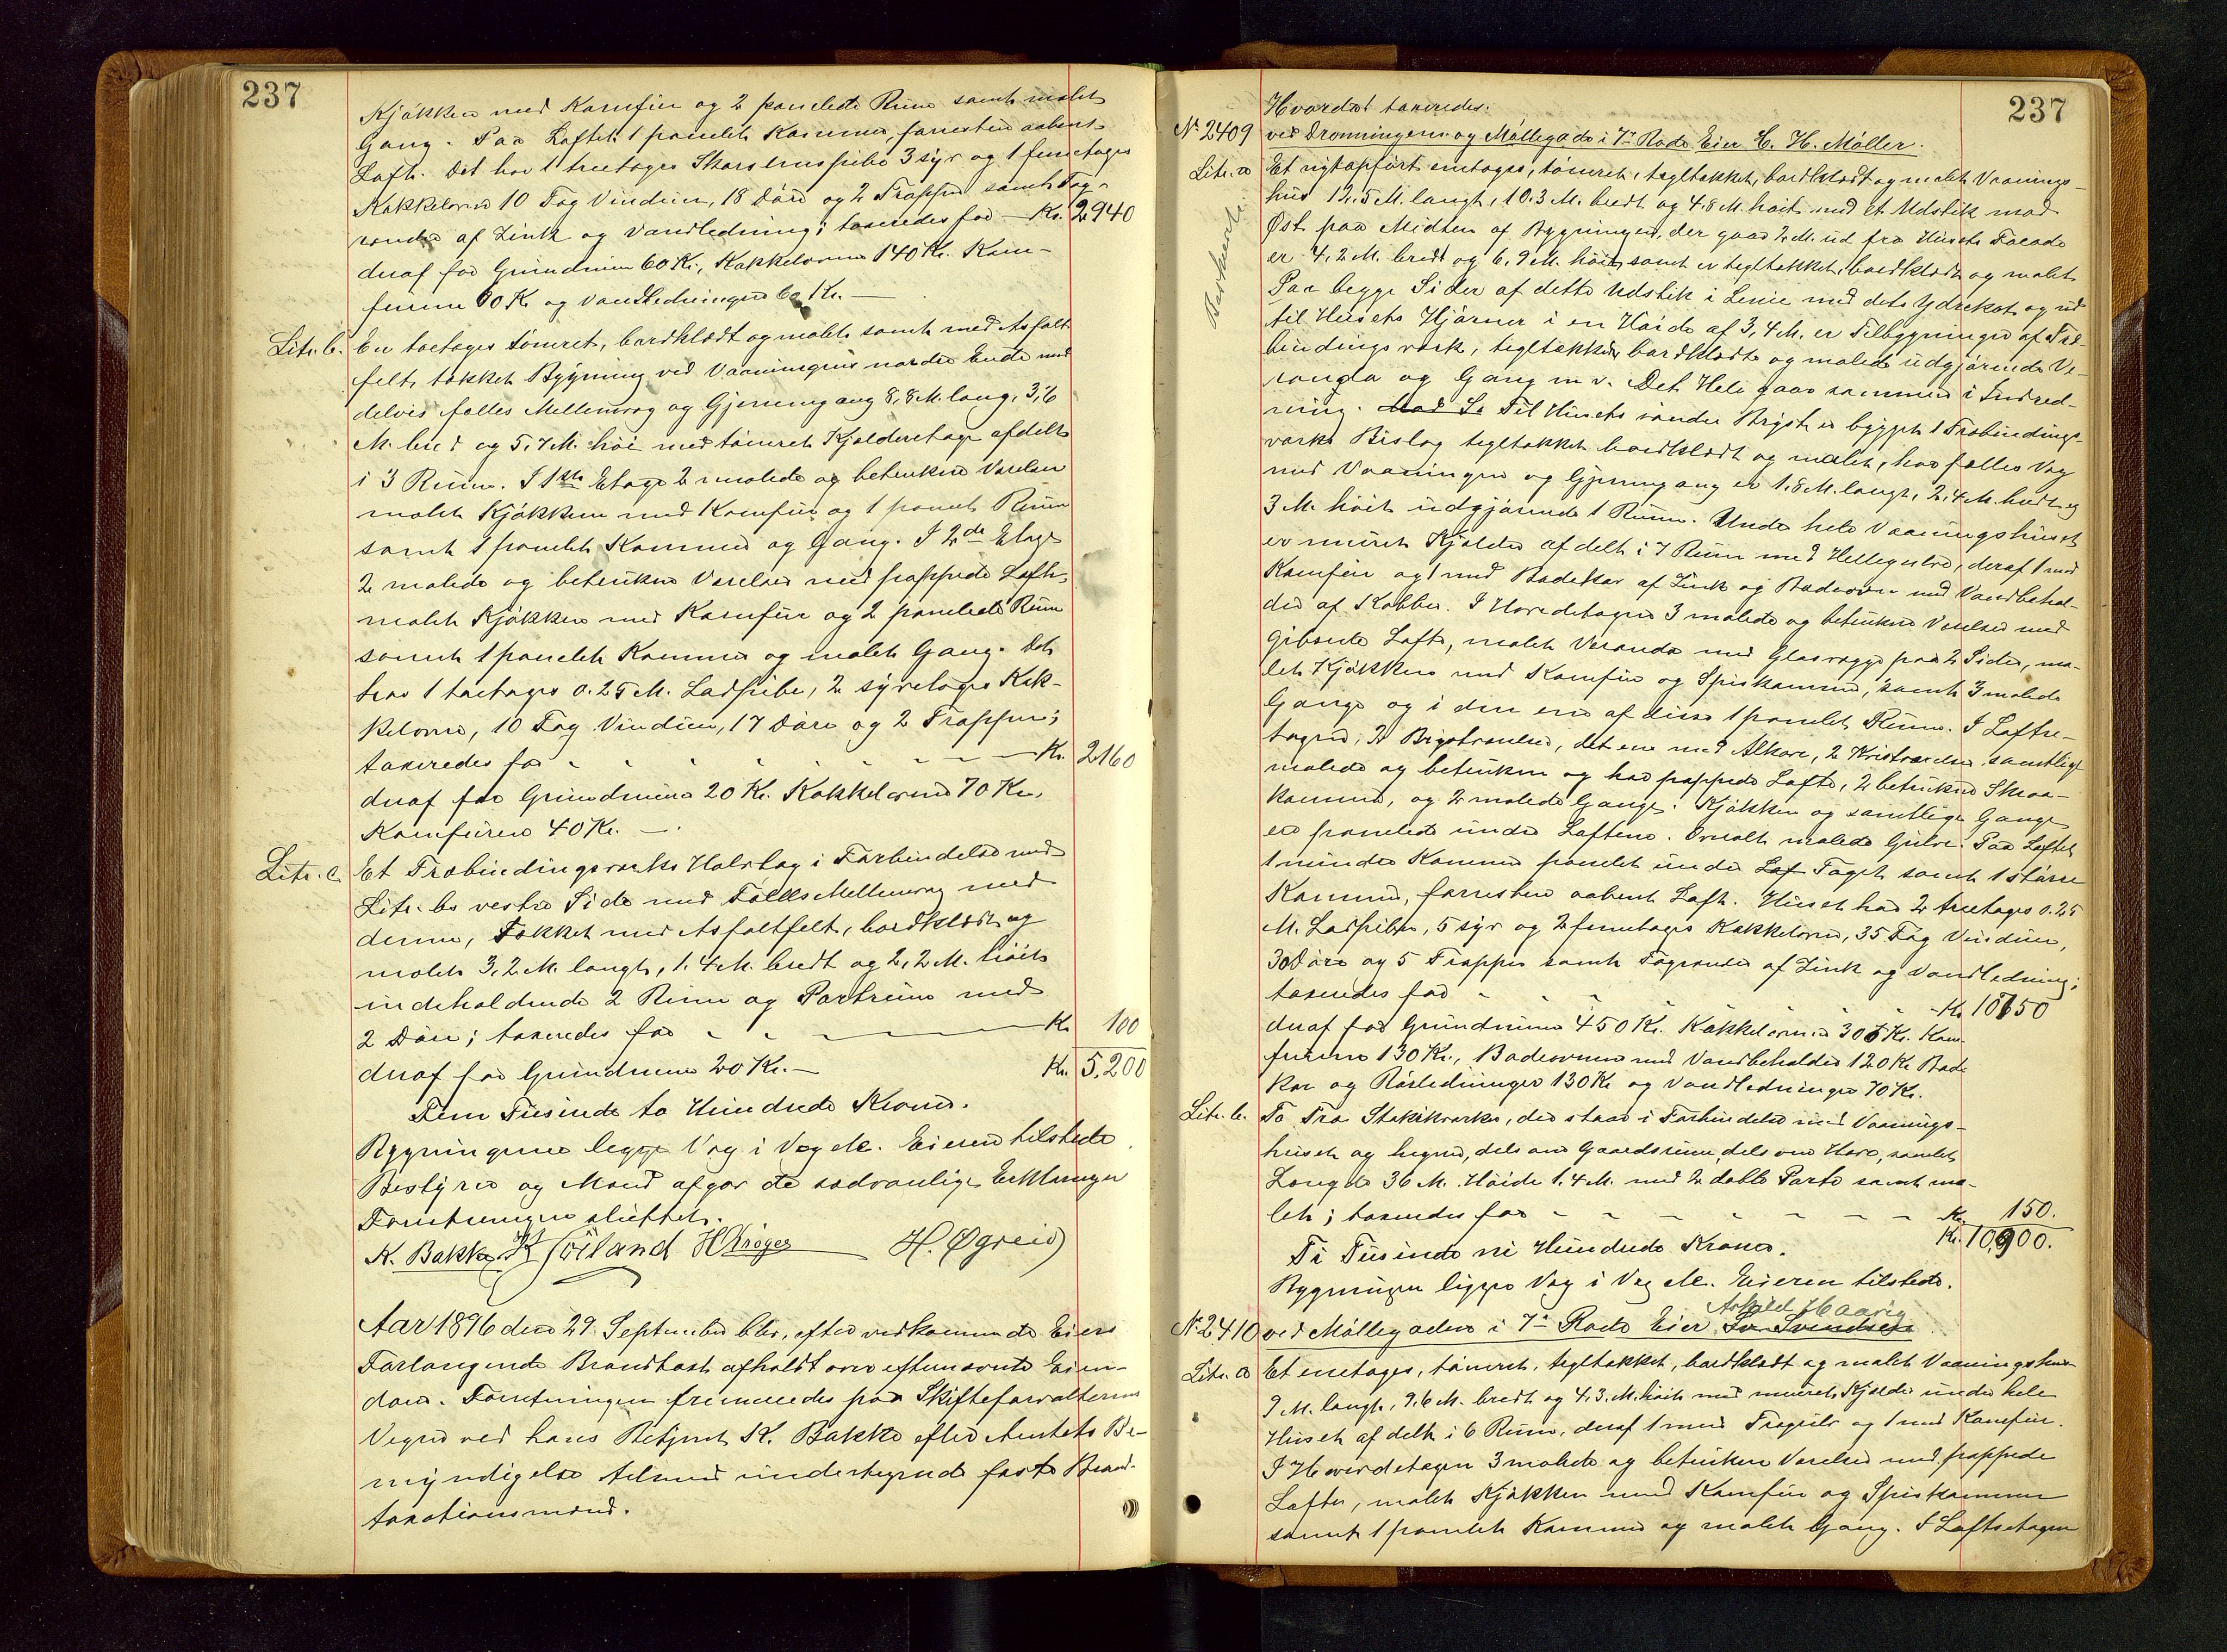 237
Kjøkken med Komfur og 2 panelede Rum samt malet
Gang. Paa Loftet 1 panelet Kammer, forresten aabent
Loft. Det har 1 treetages Skorstenspibe 3 syv og 1 femetages
Kakkelovne 10 Fag Vinduer, 18 Døre og 2 Trapper samt Tag-
render af Zink og Vandledning; taxeredes for — Kr. 2940
deraf for Grundmur 60 Kr., Kakkelovne 140 Kr. Kom-
furene 80 Kr. og Vandledningen 60 Kr. —
Litr. b. En toetages tømret, bordklædt og malet samt med Asfalt-
felt tækket Bygning ved Vaaningens nordre Ende med
delvis fælles Mellemvæg og Gjennemgang 8,8 M. lang, 3,6
M. bred og 5.7 M. høi med tømret Kjelderetage afdelt
i 3 Rum. I 1ste Etage 2 malede og betrukne Værelser
malet Kjøkken med Komfur og 1 panelet Rum
samt 1 panelet Kammer og Gang. I 2de Etage
2 malede og betrukne Værelser med pappede Loft,
malet Kjøkken med Komfur og 2 panelede Rum
samt 1 panelet Kammer og malet Gang. Det
har 1 toetages 0.25 M. Ladpibe, 2 syvetages Kak-
kelovne, 10 Fag Vinduer, 17 Døre og 2 Trapper;
taxeredes for - - - - - - - Kr. 2160
deraf for Grundmur 20 Kr. Kakkelovne 70 Kr.
Komfuren 40 Kr. —.
Litr. c. Et Træbindingsværks Halvtag i Forbindelse med
Litr. bs vestre Side med Fælles Mellemvæg med
denne, Tækket med Asfaltfelt, bordklædt og
malet 3,2 M. langt, 1.4 M. bredt og 2,2 M. høit
indeholdende 2 Rum og Portrum med
2 Døre; taxeredes for - - — Kr. 100
deraf for Grundmur 20 Kr. — Kr. 5,200
Fem Tusinde to Hundrede Kroner.
Bygningerne legge Væg i Væg M. Eieren tilstede
Bestyrer og Mænd afgav de sædvanlige Erklæringer
Forretningen sluttet.
K. Bakke K Søiland H Krøger H. Øgreid
Aar 1896 den 29 September blev, efter vedkommende Eiers
Forlangende Brandtaxt afholdt over eftennævnte Eien-
dom. Forretningen fremmedes paa Skifteforvalterens
Vegne ved hans Betjent K. Bakke efter Amtets Be-
myndigelse tilmed undertegnede faste Brand-
taxationsmænd.
237
Hvorda taxeredes:
No 2409 ved Dronningens og Møllegade i 7de Rode Eier H. H. Møller.
Litr. a Et nytopført enetages, tømret, tegltækket, bordklædt og malet Vaanings-
hus 12.5 M. langt, 10.3 M. bredt og 4.8 M. høit med et Udstik mod
Øst paa Midten af Bygningen, der gaar 2 M. ud fra Husets Facade
er 4.2 M. bredt og 6.9 M. høit samt er tegltækket, bordklædt og malet
Paa begge Sider af dette Udstik i Linie med dets Yderkant og ud
til Husets Hjørner i en Høide af 3,4 M. er Tilbygninger af Træ-
bindingsværk, tegltækkede bordklædte og malede udgjørende Ve-
randa og Gang m v. Det Hele gaar sammen i Indred-
ning. Mod S. Til Husets søndre Bryst er bygget 1 Træbindings-
værks Bislag tegltækket bordklædt og malet, har fælles Væg
med Vaaningen og Gjennemgang er 1.8 M. langt, 2.4 M. bredt og
3 M. høit udgjørende 1 Rum. Under hele Vaaningshuset
er muret Kjelder afdelt i 7 Rum med Hellegulve, deraf 1 med
Komfur og 1 med Badekar af Zink og Badeovn med Vandbehol-
der af Kobber. I Hovedetagen 3 malede og betrukne Værelser med
gibsede Loft, malet Veranda med Glasvægge paa 2 Sider, ma-
let Kjøkken med Komfur og Spiskammer, samt 3 malede
Gange og i den ene af disse 1 panelet Rum. I Loftse-
tagen, 2 Brystværelser, det ene med Alkove, 2 Kvistværelser samtlige
malede og betrukne og har pappede Lofte, 2 betrukne Skraa-
kammer, og 2 malede Gange. Kjøkken og samtlige Gange
er panelede under Loftene. Overalt malede Gulve. Paa Loftet
1 mindre Kammer panelet under Lof Taget samt 1 større
Kammer, forresten aabent Loft. Huset har 2 treetages 0.25
M. Ladpiber, 5 syv og 2 femetages Kakkelovne, 35 Fag Vinduer,
30 Døre og 5 Trapper samt Tagrender af Zink og Vandledning;
taxeredes for - - - - - Kr 10750
deraf for Grundmur 450 Kr. Kakkelovne 300 Kr. Kom-
furene 130 Kr., Badeovnen med Vandbeholder 120 Kr Bade
kar og Rørledninger 130 Kr og Vandledningen 70 Kr.
Litr. b. To Træ Stakitværker, der staar i Forbindelse med Vaanings-
huset og hegner, dels om Gaardsrum, dels om Have, samlet
Længde 36 M. Høide 1.4 M. med 2 doble Porte samt ma-
let; taxeredes for - - - - - - - Kr. 150.
Ti Tusinde ni Hundrede Kroner. Kr. 10,900.
Bygningen ligger Væg i Væg M. Eieren tilstede.
Askild Haarig
No 2410 ved Møllegaden i 7de Rode Eier Sv. Svendsen
Litr. a Et enetages, tømret, tegltækket, bordklædt og malet Vaaningshus
9 M. langt, 9.6 M. bredt og 4.3 M. høit med muret Kjelder under hele
Huset afdelt i 6 Rum, deraf 1 med Trægulv og 1 med Komfur.
I Hovedetagen 3 malede og betrukne Værelser med pappede
Lofter, malet Kjøkken med Komfur og Spiskammer
samt 1 panelet Kammer og malet Gang. I Loftsetagen